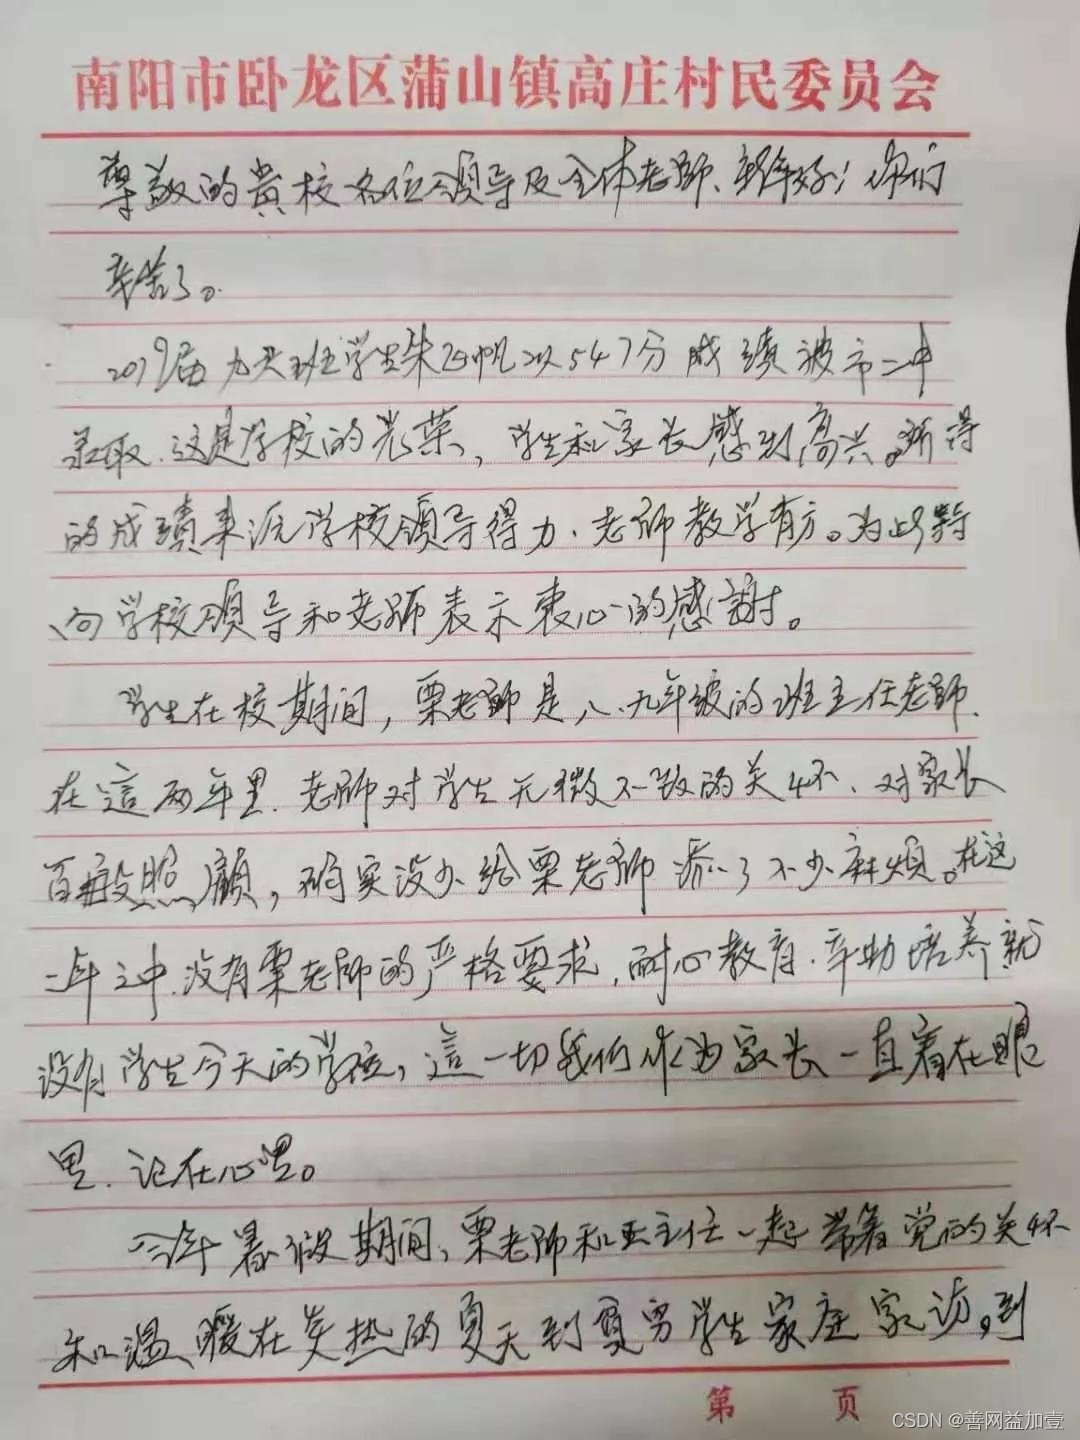 南阳市卧龙区蒲山镇高庄村民委员会
尊敬的贵校各位领导及全体老師、新年好！你们
辛苦了。
2019届九六班学生朱飞帆以547分成绩被市二中
录取.这是学校的光荣，学生和家长感到高兴。所得
的成績来源学校领导得力、老师教学有方。为此特
向学校領导和老师表示衷心的感謝。
学生在校期间，栗老師是八.九年级的班主任老師.
在這两年里.老師对学生无微不致的关怀、对家长
百般照顧，确实没少给栗老师添了不少麻烦。在这
三年之中.没有栗老師的严格要求.耐心教育.辛勤培养就
没有学生今天的学位，這一切我们作为家长一直看在眼
里.记在心里。
今年暑假期间，栗老师和王主任一起带着党的关怀
和温暖在炎热的夏天到贫穷学生家庭家访。到
第 页
CSDN @善网益加壹